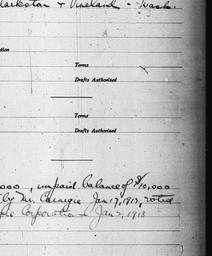 Clarkston & Vineland - Wash.
tion
Terms
Drafts Authorized
Terms
Drafts Authorized
000, unpaid balance of $10,000
by Mr. Carnegie Jan 17, 1913, voted
Corporation Jan 2, 1913